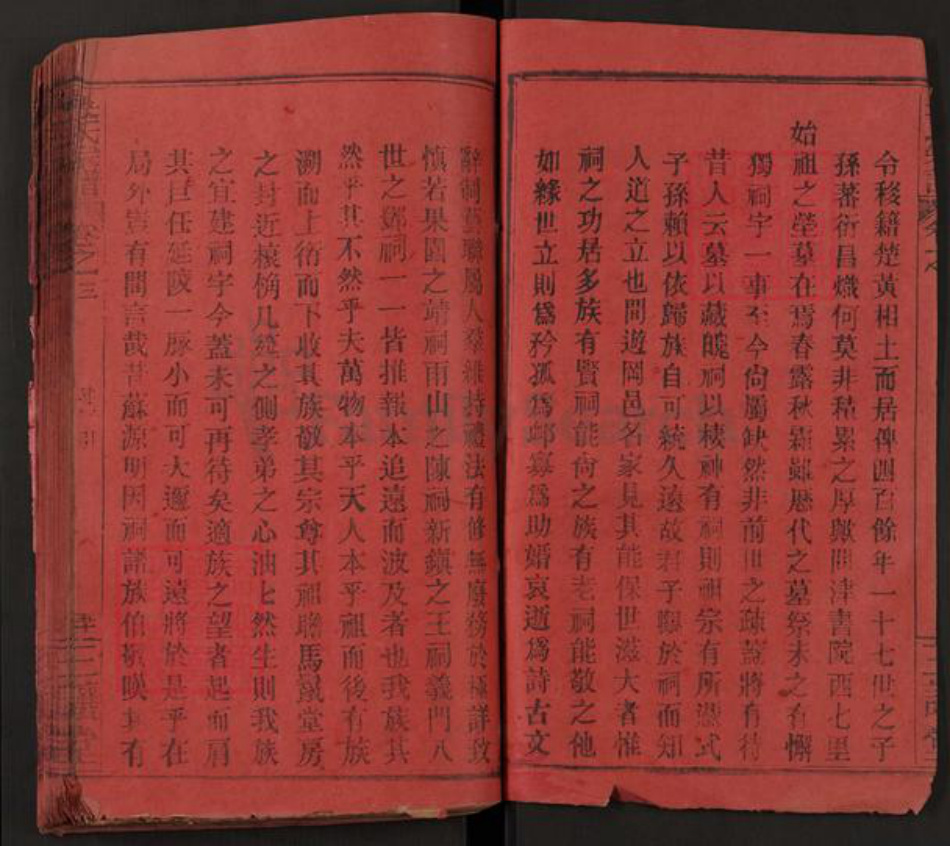 令移籍楚黃相土而居俾四百餘年一十七世之子
孫蕃衍昌熾何莫非積累之厚歟問津書院西七里
始祖之塋墓在焉春露秋霜歲歷代之墓祭未之有懈
獨祠宇一事至今尙屬缺然非前世之疎蓋將有待
昔人云墓以藏魄祠以棲神有祠則祖宗有所憑式
子孫賴以依歸族自可統久遠故君子線於祠而知
人道之立也間遊岡邑名家見其能保世滋大者惟
祠之功居多族有賢祠能尙之族有老祠能敬之他
如緣世立則爲矜孤爲䘏寡爲助婚哀逝爲詩古文
辭制藝聯屬人羣維持禮法有修無廢務於極詳致
愼若果園之靖祠雨山之陳祠新鎭之王祠義門八
世之鄧祠一一皆推報本追遠而波及者也我族其
然乎其不然乎夫萬物本乎天人本乎祖而後有族
溯而上衍而下收其族敬其宗尊其祖聯馬鬣堂房
之封近榱桷几筵之側孝弟之心油七然生則我族
之宜建祠宇今蓋未可再待矣適族之望者起而肩
其巨任延陵一脉小而可大邇而可遠將於是乎在
局外豈有間言哉昔蘇源明因祠諸族伯 嘆其有
卷之三
引